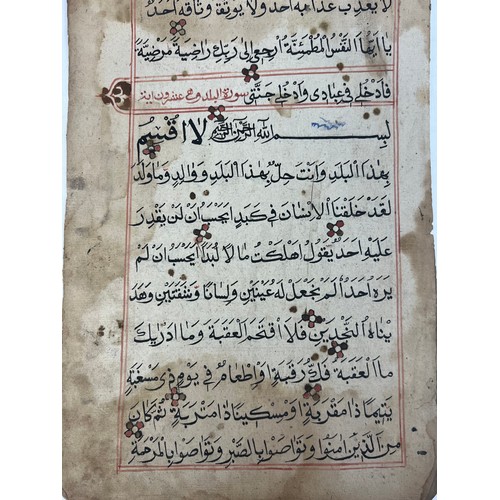 لا يعذب عذابه احد ولا يوثق وثاقه احد
يا ايها النفس المطمئنة ارجعى إلى ربك راضية مرضية
فادخلى فى عبادى وادخلى جنتى سورة البلد وهى عشرون اية
بسم الله الرحمن الرحيم لا اقسم
بهذا البلد وانت حل بهذا البلد ووالد وما ولد
لقد خلقنا الانسان فى كبد ايحسب ان لن يقدر
عليه احد يقول اهلكت مالا لبدا ايحسب ان لم
يره احد الم نجعل له عينين ولسانا وشفتين وهد
يناه النجدين فلا اقتحم العقبة وما ادريك
ما العقبة فك رقبة او اطعام فى يوم ذى مسغبة
يتيما ذا مقربة او مسكينا ذا متربة ثم كان
من الذين امنوا وتواصوا بالصبر وتواصوا بالمرحمة